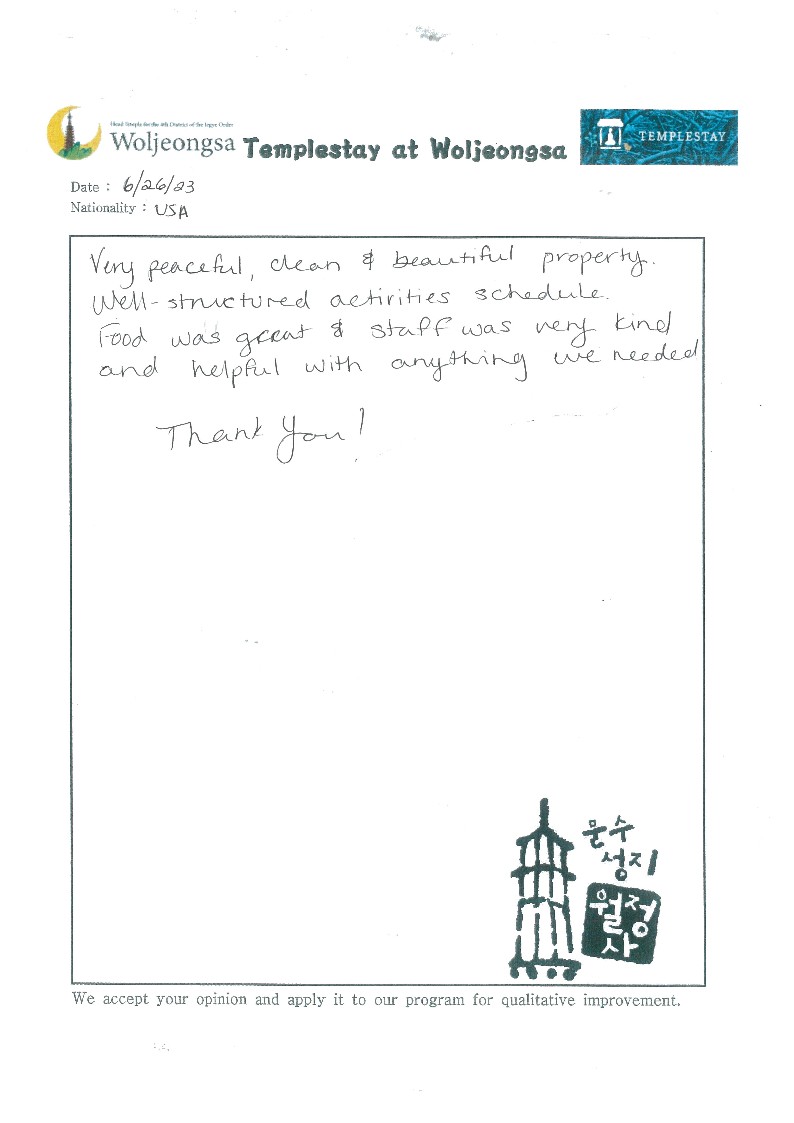 Head Temple for the 4th District of the Jogye Order
Woljeongsa Templestay at Woljeongsa
TEMPLESTAY
Date : 6/26/23
Nationality : USA
Very peaceful, clean & beautiful property.
Well-structured activities schedule.
Food was great & staff was very kind
and helpful with anything we needed
Thank you!
문수
성지
월정
사
We accept your opinion and apply it to our program for qualitative improvement.